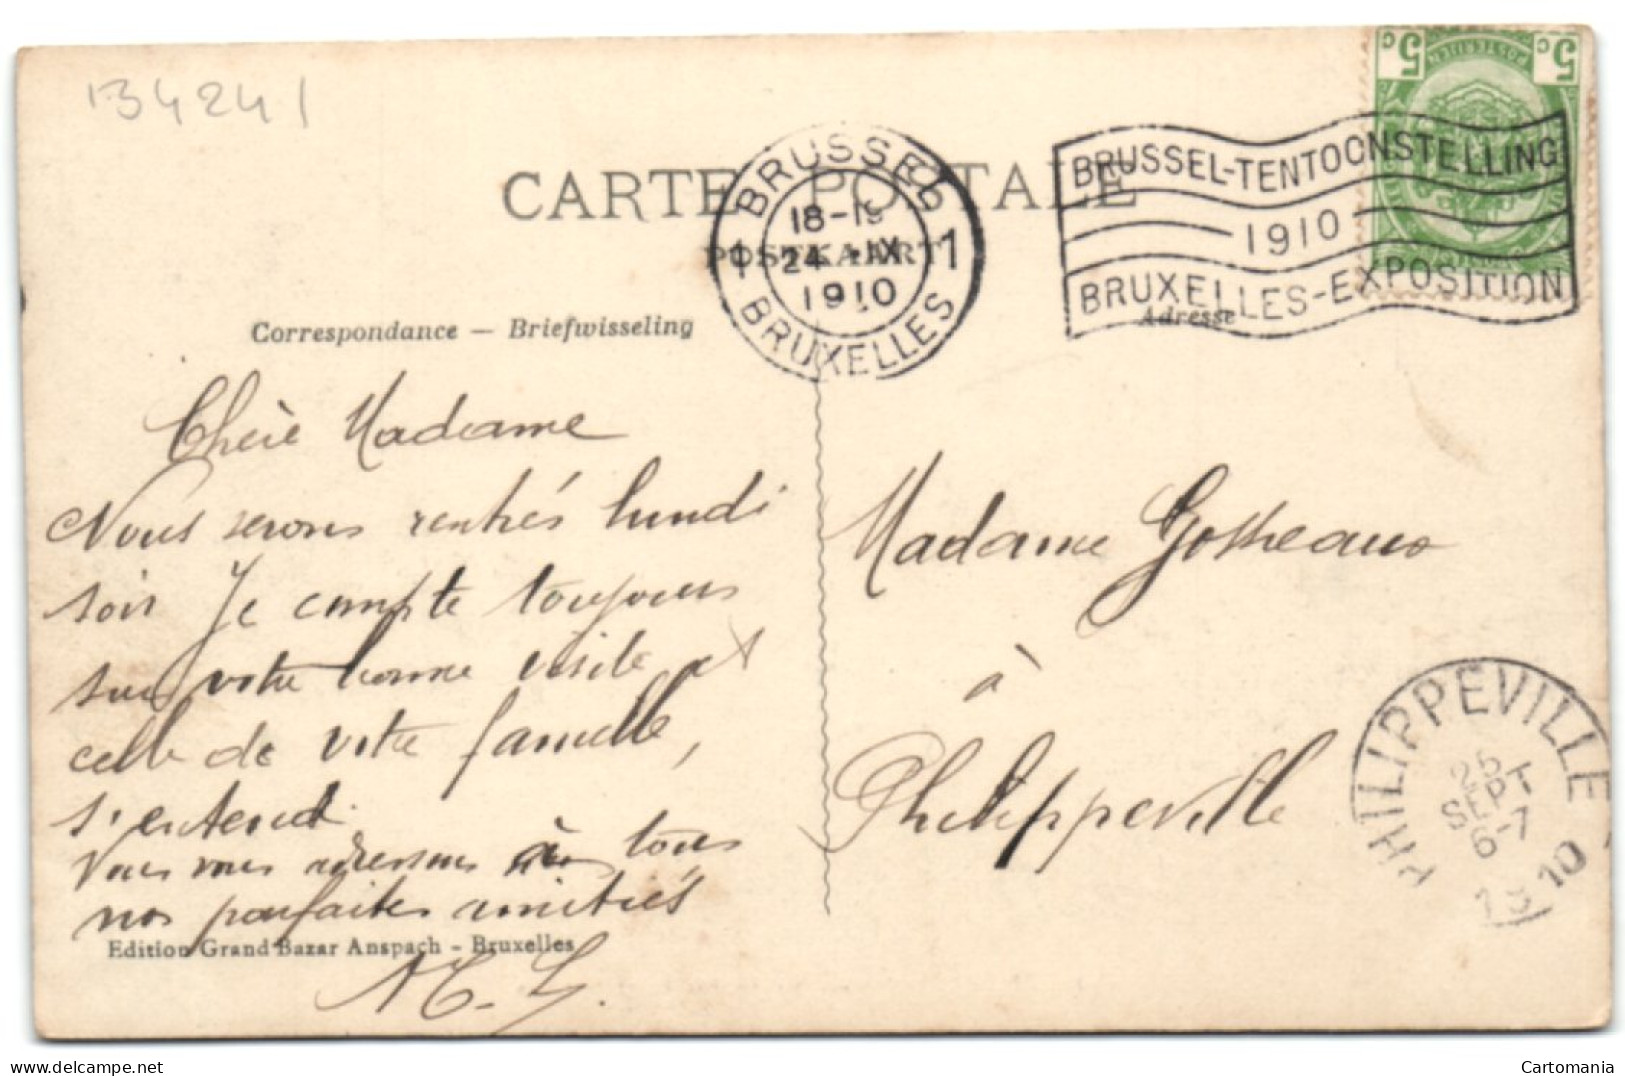 34241
CARTE POSTALE
POSTKAART
Correspondance — Briefwisseling
Adresse
BRUSSEL
18-19
24 IX
1910
1 1
BRUXELLES
BRUSSEL-TENTOONSTELLING
1910
BRUXELLES-EXPOSITION
5c 5c
POSTERIJEN
Chère Madame
Nous serons rentrés lundi
soir Je compte toujours
sur votre bonne visite et
celle de votre famille,
s'entend.
Nous vous adressons à tous
nos parfaites amitiés
Edition Grand Bazar Anspach - Bruxelles
Madame Gosseaux
à
Philippeville
PHILIPPEVILLE
25
SEPT
6-7
1910
Cartomania